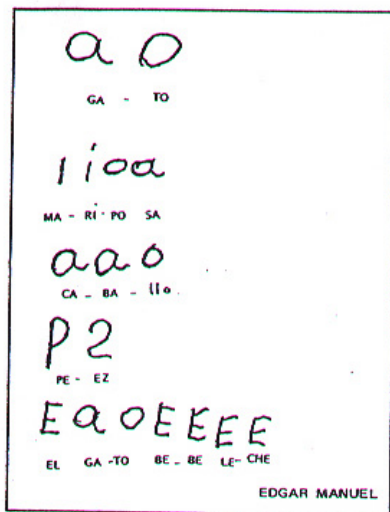 a o
GA - TO
l i o a
MA - RI - PO SA
a a o
CA - BA - llo.
P 2
PE - EZ
E a o E E E E
EL GA - TO BE - BE LE - CHE
EDGAR MANUEL